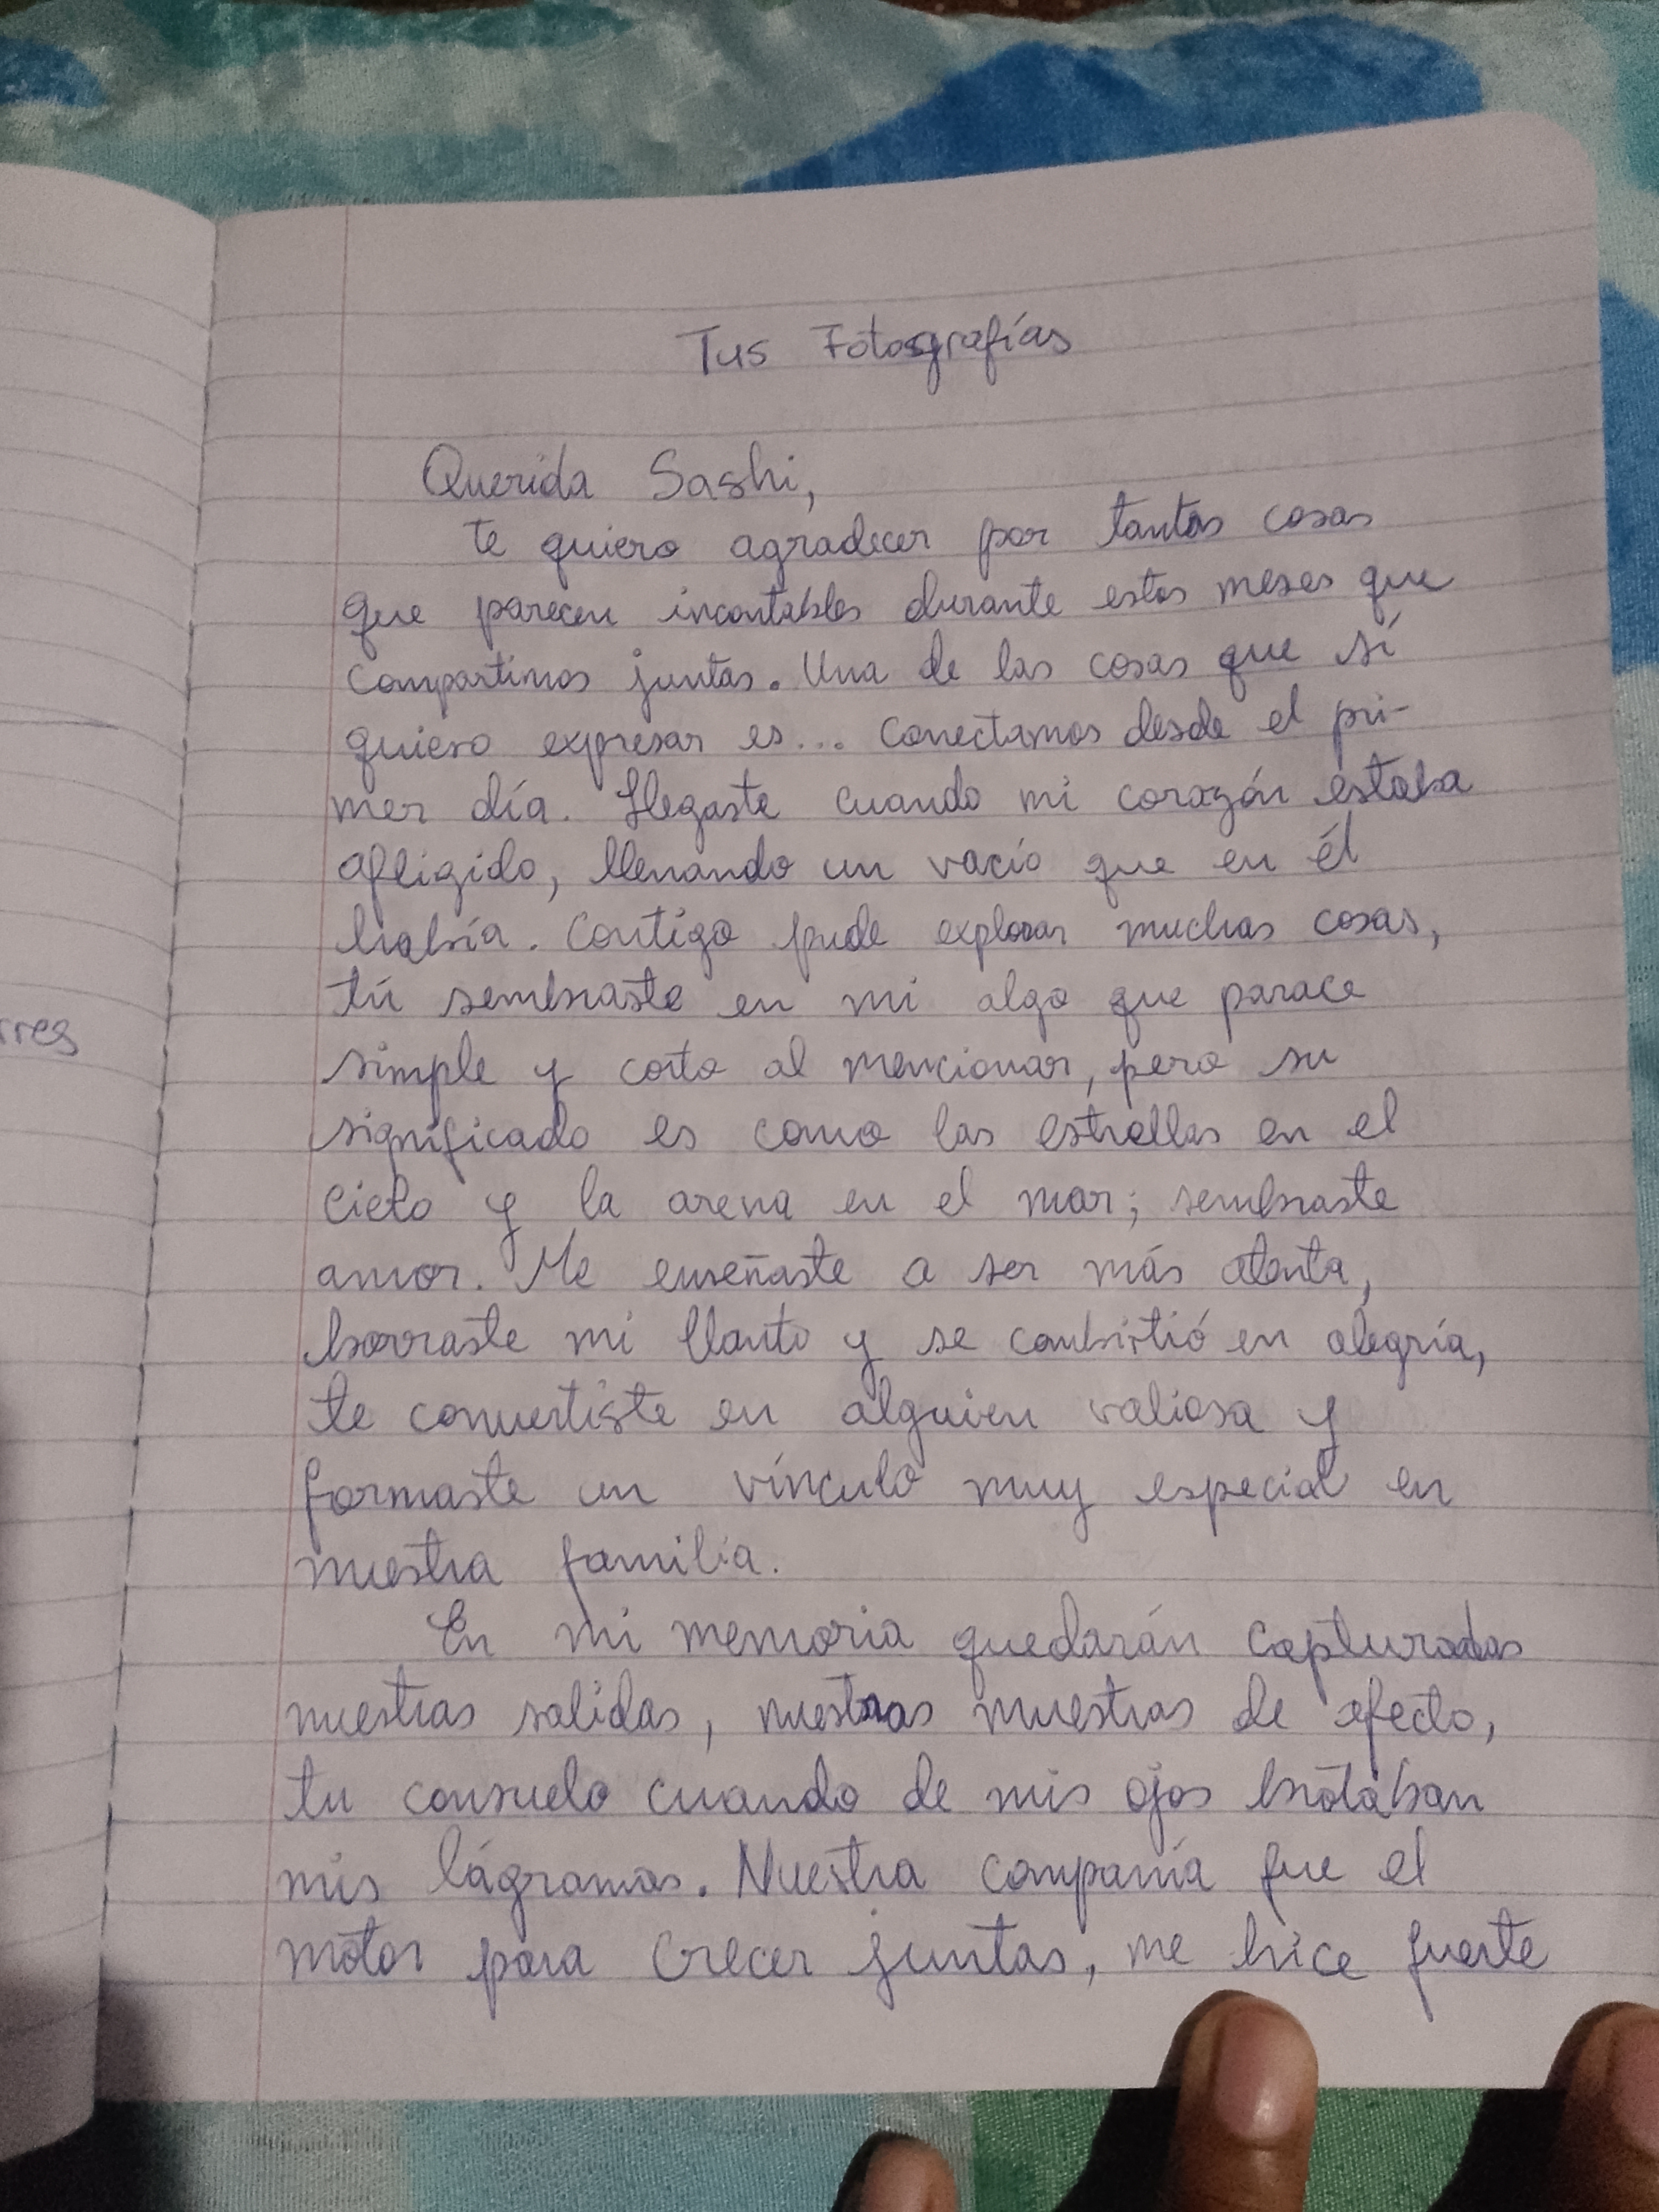 Tus Fotografías
Querida Sashi,
te quiero agradecer por tantas cosas
que parecen incontables durante estos meses que
compartimos juntas. Una de las cosas que sí
quiero expresar es... Conectamos desde el pri-
mer día. Llegaste cuando mi corazón estaba
afligido, llenando un vacío que en él
había. Contigo pude explorar muchas cosas,
tú sembraste en mi algo que parace
simple y corto al mencionar, pero su
significado es como las estrellas en el
cielo y la arena en el mar; sembraste
amor. Me enseñaste a ser más atenta,
borraste mi llanto y se combirtió en alegría,
te convertiste en alguien valiosa y
formaste un vínculo muy especial en
nuestra familia.
En mi memoria quedarán capturadas
nuestras salidas, nuestras muestras de afecto,
tu consuelo cuando de mis ojos brotaban
mis lágramas. Nuestra companía fue el
motor para crecer juntas, me hice fuerte
rres